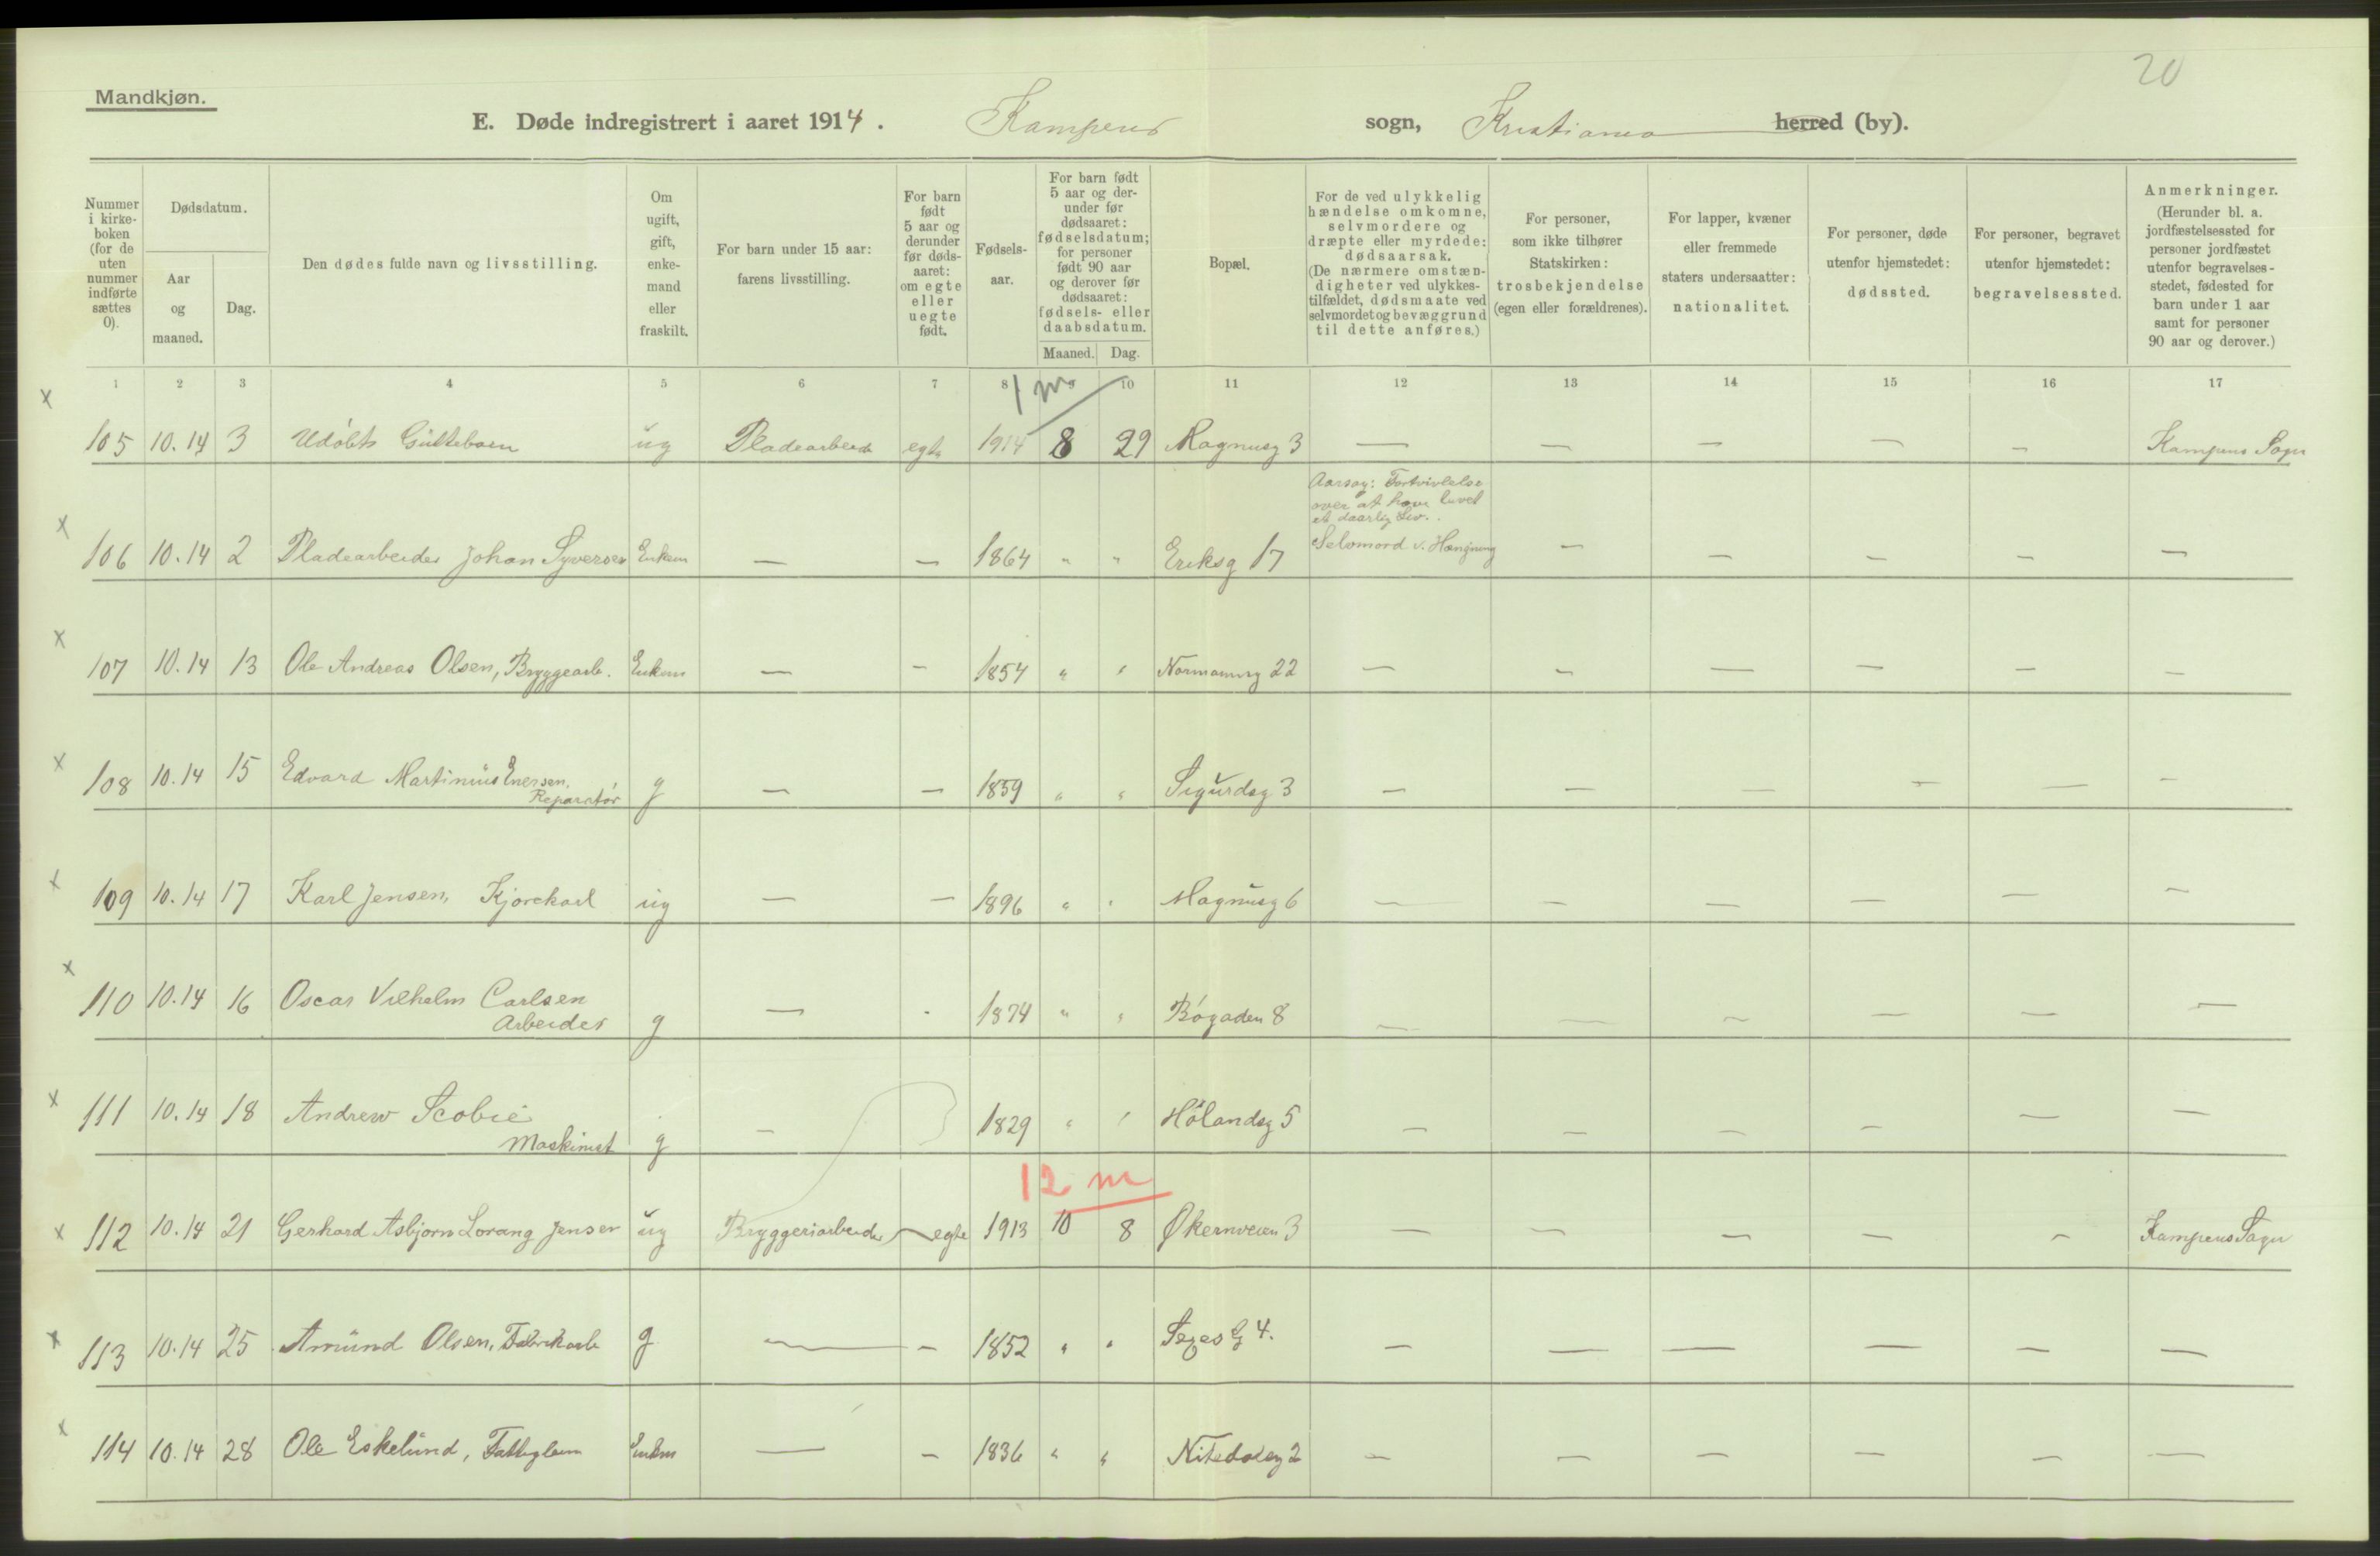 20
Mandkjøn.
E. Døde indregistrert i aaret 1914. Kampens sogn, Kristiania herred (by).
Nummer i kirkeboken (for de uten nummer indførte sættes 0).
Dødsdatum.
Aar og maaned.
Dag.
Den dødes fulde navn og livsstilling.
Om ugift, gift, enkemand eller fraskilt.
For barn under 15 aar: farens livsstilling.
For barn født 5 aar og derunder før dødsaaret: om egte eller uegte født.
Fødselsaar.
For barn født 5 aar og derunder før dødsaaret: fødselsdatum; for personer født 90 aar og derover før dødsaaret: fødsels- eller daabsdatum.
Maaned. Dag.
Bopæl.
For de ved ulykkelig hændelse omkomne, selvmordere og dræpte eller myrdede: dødsaarsak. (De nærmere omstændigheter ved ulykkestilfældet, dødsmaate ved selvmordet og bevæggrund til dette anføres.)
For personer, som ikke tilhører Statskirken: trosbekjendelse (egen eller forældrenes).
For lapper, kvæner eller fremmede staters undersaatter: nationalitet.
For personer, døde utenfor hjemstedet: dødssted.
For personer, begravet utenfor hjemstedet: begravelsessted.
Anmerkninger. (Herunder bl. a. jordfæstelsessted for personer jordfæstet utenfor begravelsesstedet, fødested for barn under 1 aar samt for personer 90 aar og derover.)
1 2 3 4 5 6 7 8 9 10 11 12 13 14 15 16 17
1 m
x 105 10.14 3 Udøbt ug Pladearbeider egte 1914 8 29 Magnusg 3 — — — — — Kampens Sogn
Aarsag: Fortvivlelse
over at have levet
et daarlig Liv.
x 106 10.14 2 Pladearbeider Johan Syversen Enkem — — 1864 " " Eriksg 17 Selvmord v. Hængning — — — — —
x 107 10.14 13 Ole Andreas Olsen, Bryggearb. Enkem — — 1854 " " Normannsg 22 — — — — — —
x 108 10.14 15 Edvard Martinius Enersen, Reparatør g — — 1859 " " Sigurdsg 3 — — — — — —
x 109 10.14 17 Karl Jensen, Kjørekarl ug — — 1896 " " Magnusg 6 — — — — — —
x 110 10.14 16 Oscar Vilhelm Carlsen Arbeider g — - 1874 " " Bøgaden 8 — — — — — —
x 111 10.14 18 Andrew Scobie Maskinist g — 1829 " " Hølandsg 5 — — — — — —
12 m
x 112 10.14 21 Gerhard Asbjørn Lorang Jensen ug Bryggeriarbeider egte 1913 10 8 Økernveien 3 — — — — — Kampens Sogn
x 113 10.14 25 Amund Olsen, Fabrikarb g — — 1852 " " G 4. — — — — — —
x 114 10.14 28 Ole Eskelund, Fattiglem Enkem — — 1836 " " Nitedalsg 2 — — — — — —